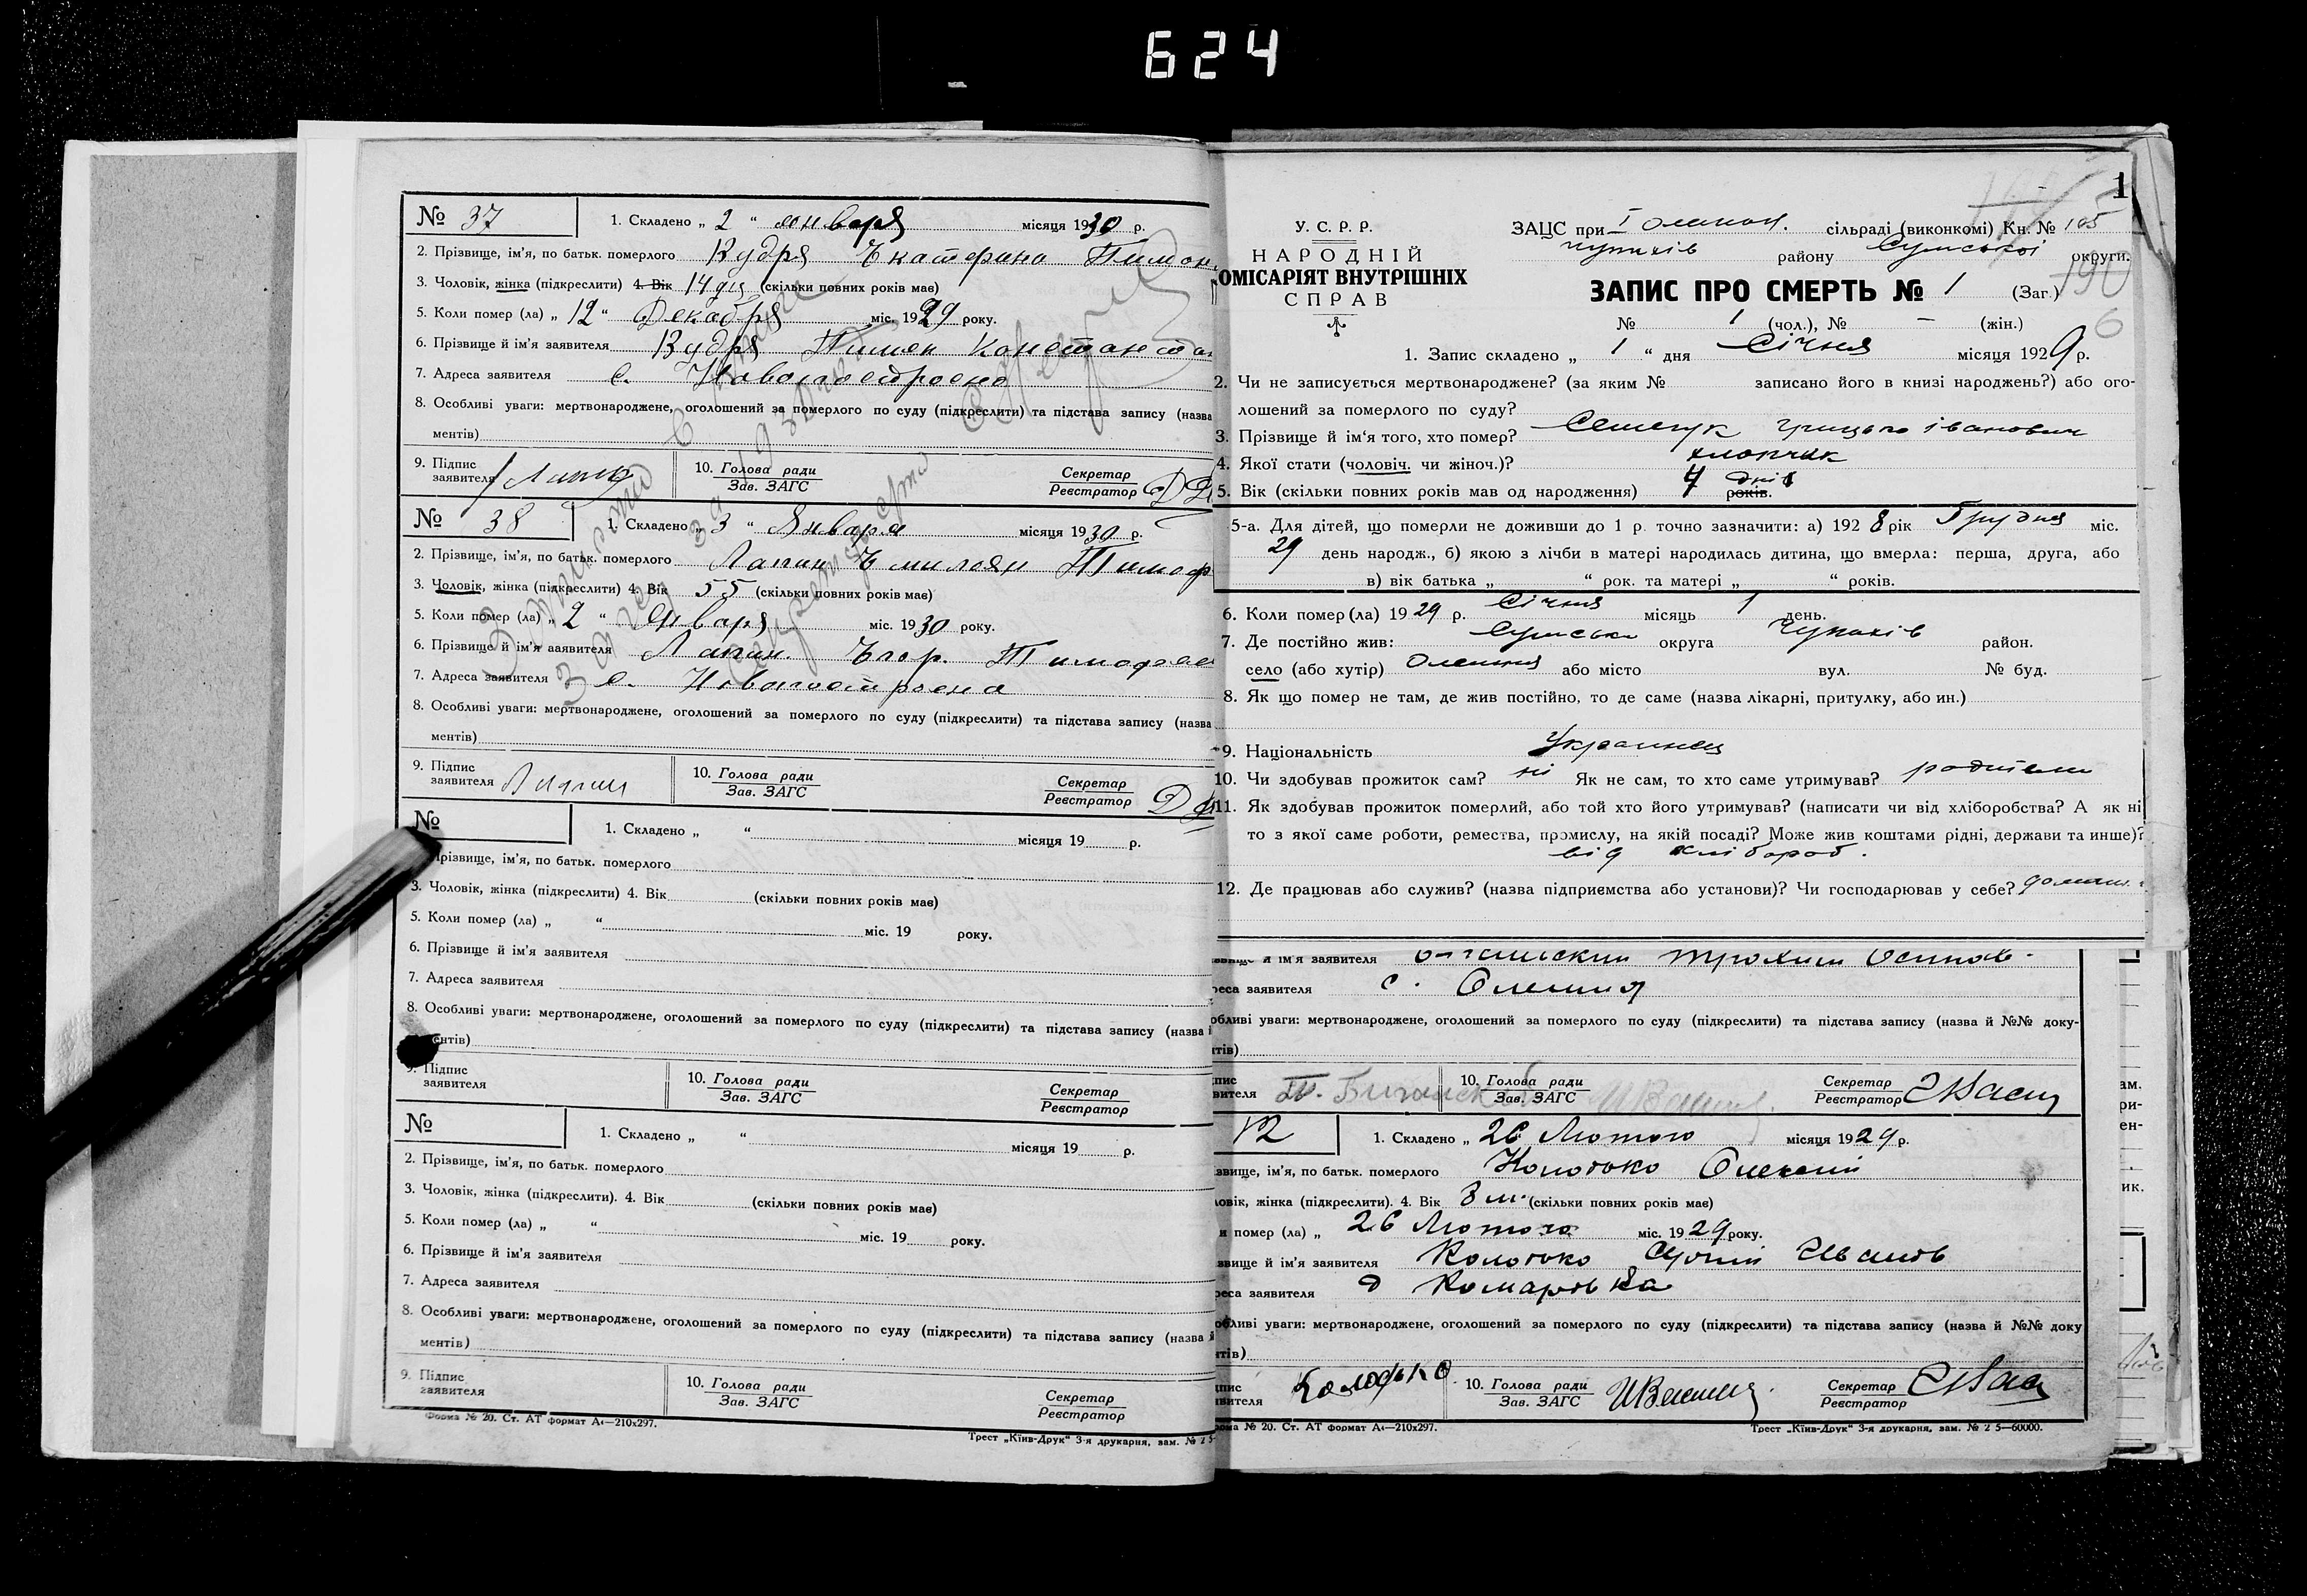 624
№ 37
1. Складено „ 2 “ января місяця 1930 р.
2. Прізвище, ім'я, по батьк. померлого Кудря Екатерина
3. Чоловік, жінка (підкреслити) 4. Вік 14 дн (скільки повних років має)
5. Коли помер (ла) „ 12 “ Декабря міс. 1929 року.
6. Прізвище й ім'я заявителя Кудря Пимен
7. Адреса заявителя с. Новопостроено
8. Особливі уваги: мертвонароджене, оголошений за померлого по суду (підкреслити) та підстава запису (назва
ментів)
9. Підпис заявителя
10. Голова ради
Зав. ЗАГС
Секретар
Реєстратор
№ 38
1. Складено „ 3 “ Января місяця 1930 р.
2. Прізвище, ім'я, по батьк. померлого Лапин Емилоян
3. Чоловік, жінка (підкреслити) 4. Вік 55 (скільки повних років має)
5. Коли помер (ла) „ 2 “ Января міс. 1930 року.
6. Прізвище й ім'я заявителя Лапин Егор.
7. Адреса заявителя с. Новопостроена
8. Особливі уваги: мертвонароджене, оголошений за померлого по суду (підкреслити) та підстава запису (назва
ментів)
9. Підпис заявителя Лапин
10. Голова ради
Зав. ЗАГС
Секретар
Реєстратор
№
1. Складено „ “ місяця 19 р.
Прізвище, ім'я, по батьк. померлого
3. Чоловік, жінка (підкреслити) 4. Вік (скільки повних років має)
5. Коли помер (ла) „ “ міс. 19 року.
6. Прізвище й ім'я заявителя
7. Адреса заявителя
8. Особливі уваги: мертвонароджене, оголошений за померлого по суду (підкреслити) та підстава запису (назва й
ентів)
9. Підпис заявителя
10. Голова ради
Зав. ЗАГС
Секретар
Реєстратор
№
1. Складено „ “ місяця 19 р.
2. Прізвище, ім'я, по батьк. померлого
3. Чоловік, жінка (підкреслити). 4. Вік (скільки повних років має)
5. Коли помер (ла) „ “ міс. 19 року.
6. Прізвище й ім'я заявителя
7. Адреса заявителя
8. Особливі уваги: мертвонароджене, оголошений за померлого по суду (підкреслити) та підстава запису (назва й
ментів)
9. Підпис заявителя
10. Голова ради
Зав. ЗАГС
Секретар
Реєстратор
Форма № 20. Ст. АТ формат А4—210х297.
Трест „Київ-Друк“ 3-я друкарня, зам. № 2 5-
1
У. С. Р. Р.
НАРОДНІЙ
ОМІСАРІЯТ ВНУТРІШНІХ
СПРАВ
ЗАЦС при сільраді (виконкомі) Кн. № 105
Чупахів району Сумської округи.
190
ЗАПИС ПРО СМЕРТЬ № 1 (Заг.)
№ 1 (чол.), № – (жін.)
6
1. Запис складено „ 1 “ дня Січня місяця 1929 р.
2. Чи не записується мертвонароджене? (за яким № записано його в книзі народжень?) або ого-
лошений за померлого по суду?
3. Прізвище й ім'я того, хто помер? Грицько Іванович
4. Якої стати (чоловіч. чи жіноч.)? хлопчик
5. Вік (скільки повних років мав од народження) 4 днів років.
5-а. Для дітей, що померли не доживши до 1 р. точно зазначити: а) 1928 рік Грудня міс.
29 день народж., б) якою з лічби в матері народилась дитина, що вмерла: перша, друга, або
в) вік батька „ “ рок. та матері „ “ років.
6. Коли помер(ла) 1929 р. Січня місяць 1 день.
7. Де постійно жив: Сумська округа Чупахів район.
село (або хутір) Олешня або місто вул. № буд.
8. Як що помер не там, де жив постійно, то де саме (назва лікарні, притулку, або ин.)
9. Національність Украинец
10. Чи здобував прожиток сам? ні Як не сам, то хто саме утримував? родители
11. Як здобував прожиток померлий, або той хто його утримував? (написати чи від хліборобства? А як ні
то з якої саме роботи, ремества, промислу, на якій посаді? Може жив коштами рідні, держави та инше)?
від хлібороб.
12. Де працював або служив? (назва підприємства або установи)? Чи господарював у себе?
й ім'я заявителя Трохим Осипов
реса заявителя с. Олешня
обливі уваги: мертвонароджене, оголошений за померлого по суду (підкреслити) та підстава запису (назва й №№ доку-
тів)
10. Голова ради
Зав. ЗАГС
Секретар
Реєстратор
12
1. Складено „ 26 Лютого місяця 1929 р.
звище, ім'я, по батьк. померлого Колотько Олексій
ловік, жінка (підкреслити). 4. Вік 8 м. (скільки повних років має)
и помер (ла) „ 26 Лютого міс. 1929 року.
звище й ім'я заявителя Колотько Иванов
реса заявителя Комаровка
обливі уваги: мертвонароджене, оголошений за померлого по суду (підкреслити) та підстава запису (назва й №№ доку
тів)
10. Голова ради
Зав. ЗАГС
Секретар
Реєстратор
рма № 20. Ст. АТ формат А4—210х297.
Трест „Київ-Друк“ 3-я друкарня, зам. № 2 5—60000.